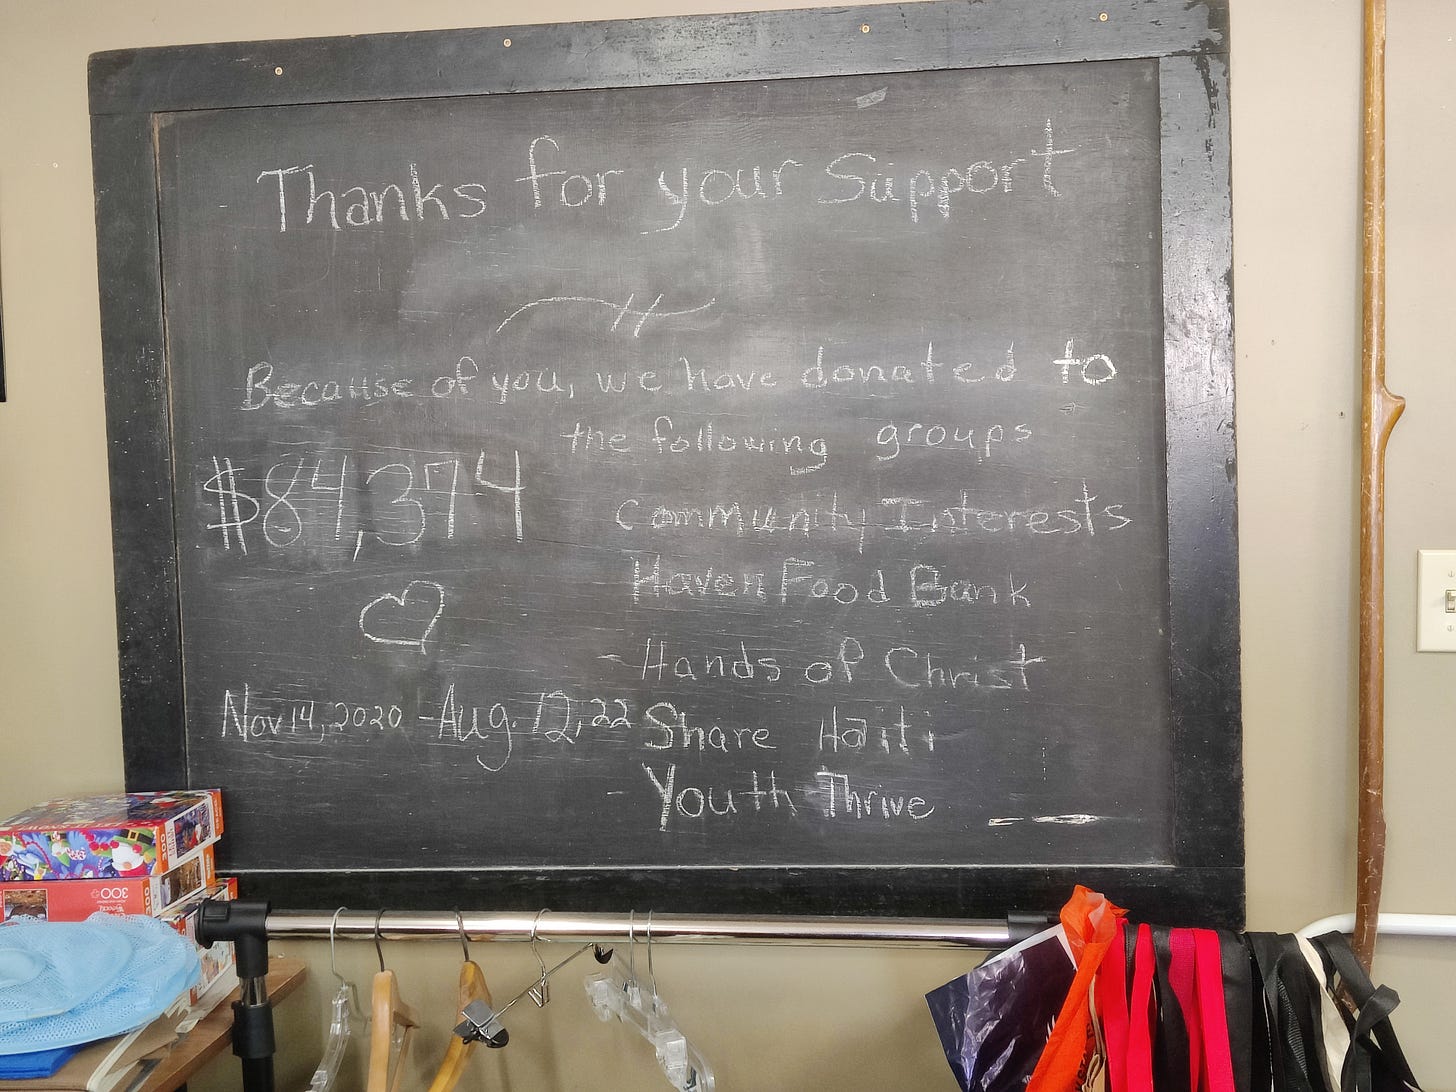 Thanks for your Support
Because of you, we have donated to
the following groups
$84,374
Community Interests
Haven Food Bank
- Hands of Christ
Nov 14, 2020 - Aug. 12, 22
Share Haiti
- Youth Thrive
300
300